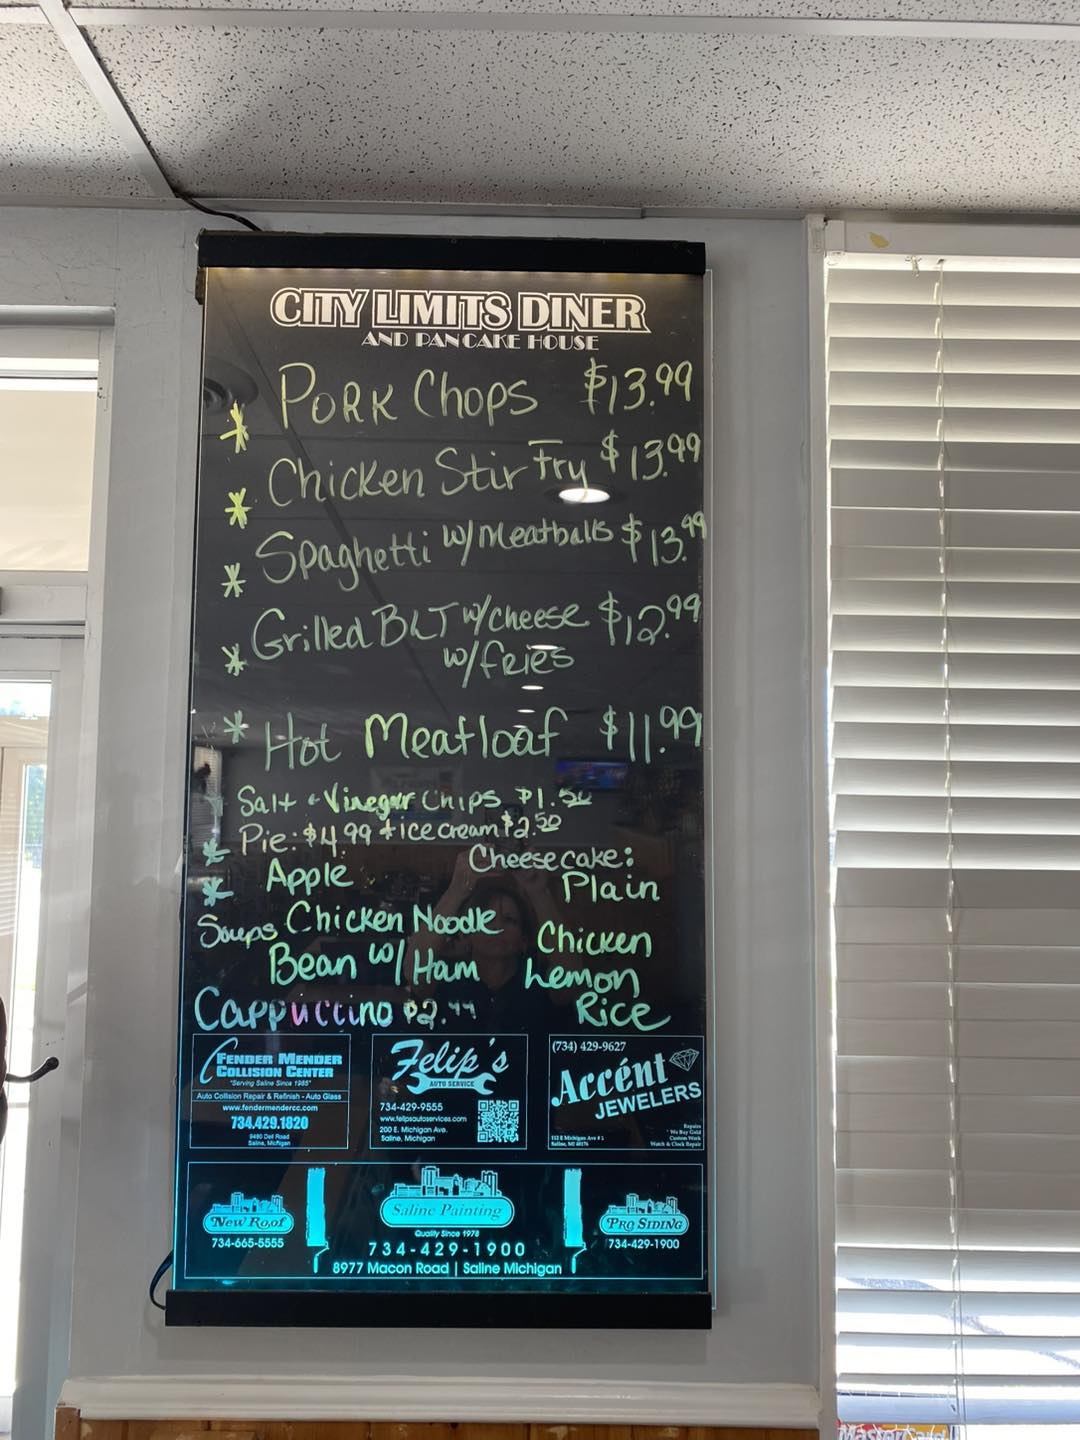 CITY LIMITS DINER
AND PANCAKE HOUSE
* PORK Chops $13.99
* Chicken Stir Fry $13.99
* Spaghetti w/Meatballs $13.99
* Grilled BLT w/cheese $12.99
w/fries
* Hot Meatloaf $11.99
Salt + Vinegar Chips $1.50
* Pie: $4.99 + ice cream $2.50
* Apple
Cheesecake:
Plain
Soups Chicken Noodle
Bean w/ Ham
Chicken
Lemon
Rice
Cappuccino $2.99
FENDER MENDER
COLLISION CENTER
"Serving Saline Since 1985"
Auto Collision Repair & Refinish - Auto Glass
www.fendermendercc.com
734.429.1820
9480 Dell Road
Saline, Michigan
Felip's
AUTO SERVICE
734-429-9555
www.felipsautoservices.com
200 E. Michigan Ave.
Saline, Michigan
(734) 429-9627
Accént
JEWELERS
Repairs
We Buy Gold
Custom Work
Watch & Clock Repair
112 E Michigan Ave # 1
Saline, MI 48176
New Roof
734-665-5555
Saline Painting
Quality Since 1978
734-429-1900
8977 Macon Road | Saline Michigan
PRO SIDING
734-429-1900